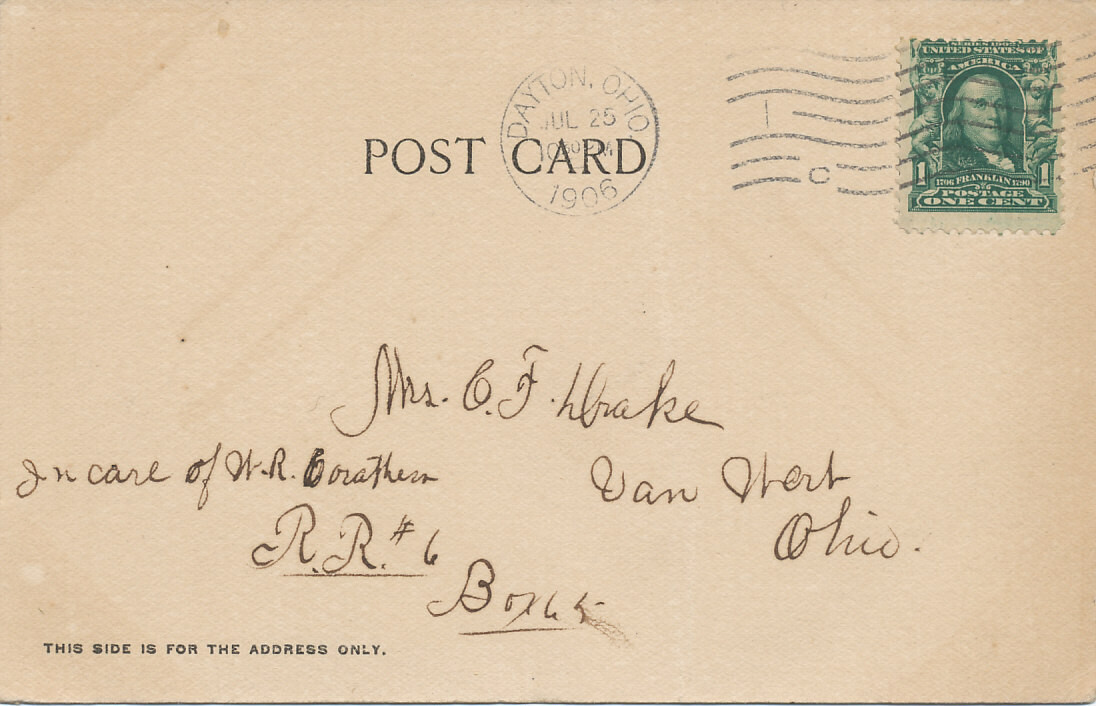 SERIES 1902
UNITED STATES OF
AMERICA
DAYTON, OHIO.
JUL 25
1906
C
POST CARD
1 1706 FRANKLIN 1790 1
POSTAGE
ONE CENT
Mrs. C. F. Drake
In care of W. R. Corathers
Van Wert
Ohio.
R. R. # 6
Box 65
THIS SIDE IS FOR THE ADDRESS ONLY.